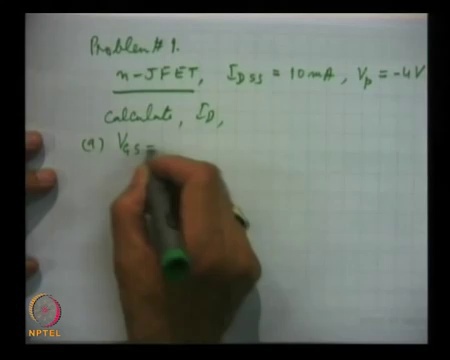 Problem # 1.
n-JFET, IDSS = 10mA, Vp = -4V
Calculate, ID,
(a) VGS =
NPTEL